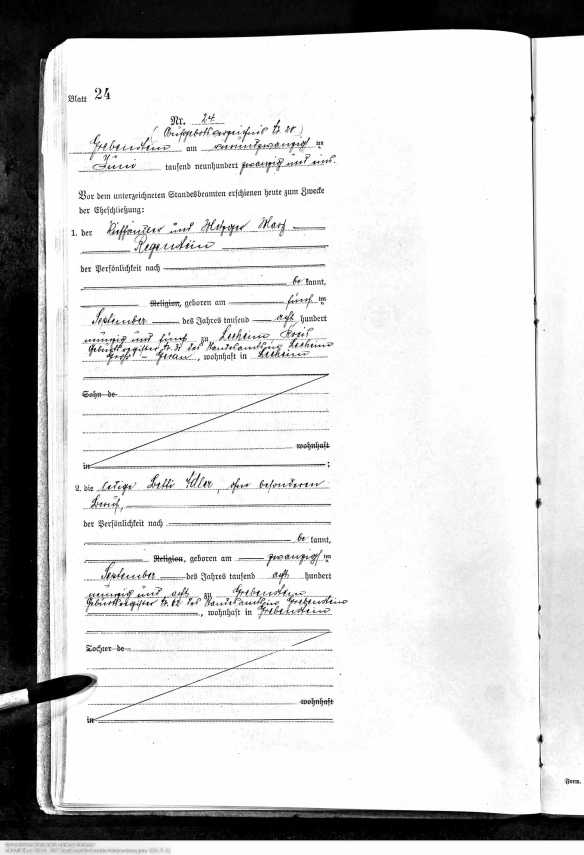 Blatt 24
Nr. 24
(Aufgebotsverzeichnis Nr. 20)
Grebenstein am neunundzwanzigsten
Juni tausend neunhundert zwanzig und eins.
Vor dem unterzeichneten Standesbeamten erschienen heute zum Zwecke
der Eheschließung:
1. der und Metzger Max
Regenstein
der Persönlichkeit nach
be kannt,
Religion, geboren am fünften
September des Jahres tausend acht hundert
neunzig und fünf zu Leeheim Kreis
Geburtsregister Nr. des Standesamts in Leeheim
Groß-Gerau, wohnhaft in Leeheim
Sohn de
wohnhaft
in ;
2. die ledige Betti Adler, ohne besonderen
Beruf,
der Persönlichkeit nach
be kannt,
Religion, geboren am zwanzigsten
September des Jahres tausend acht hundert
neunzig und acht zu Grebenstein
Geburtsregister Nr. 62 des Standesamts in Grebenstein
, wohnhaft in Grebenstein
Tochter de
wohnhaft
in
Form.